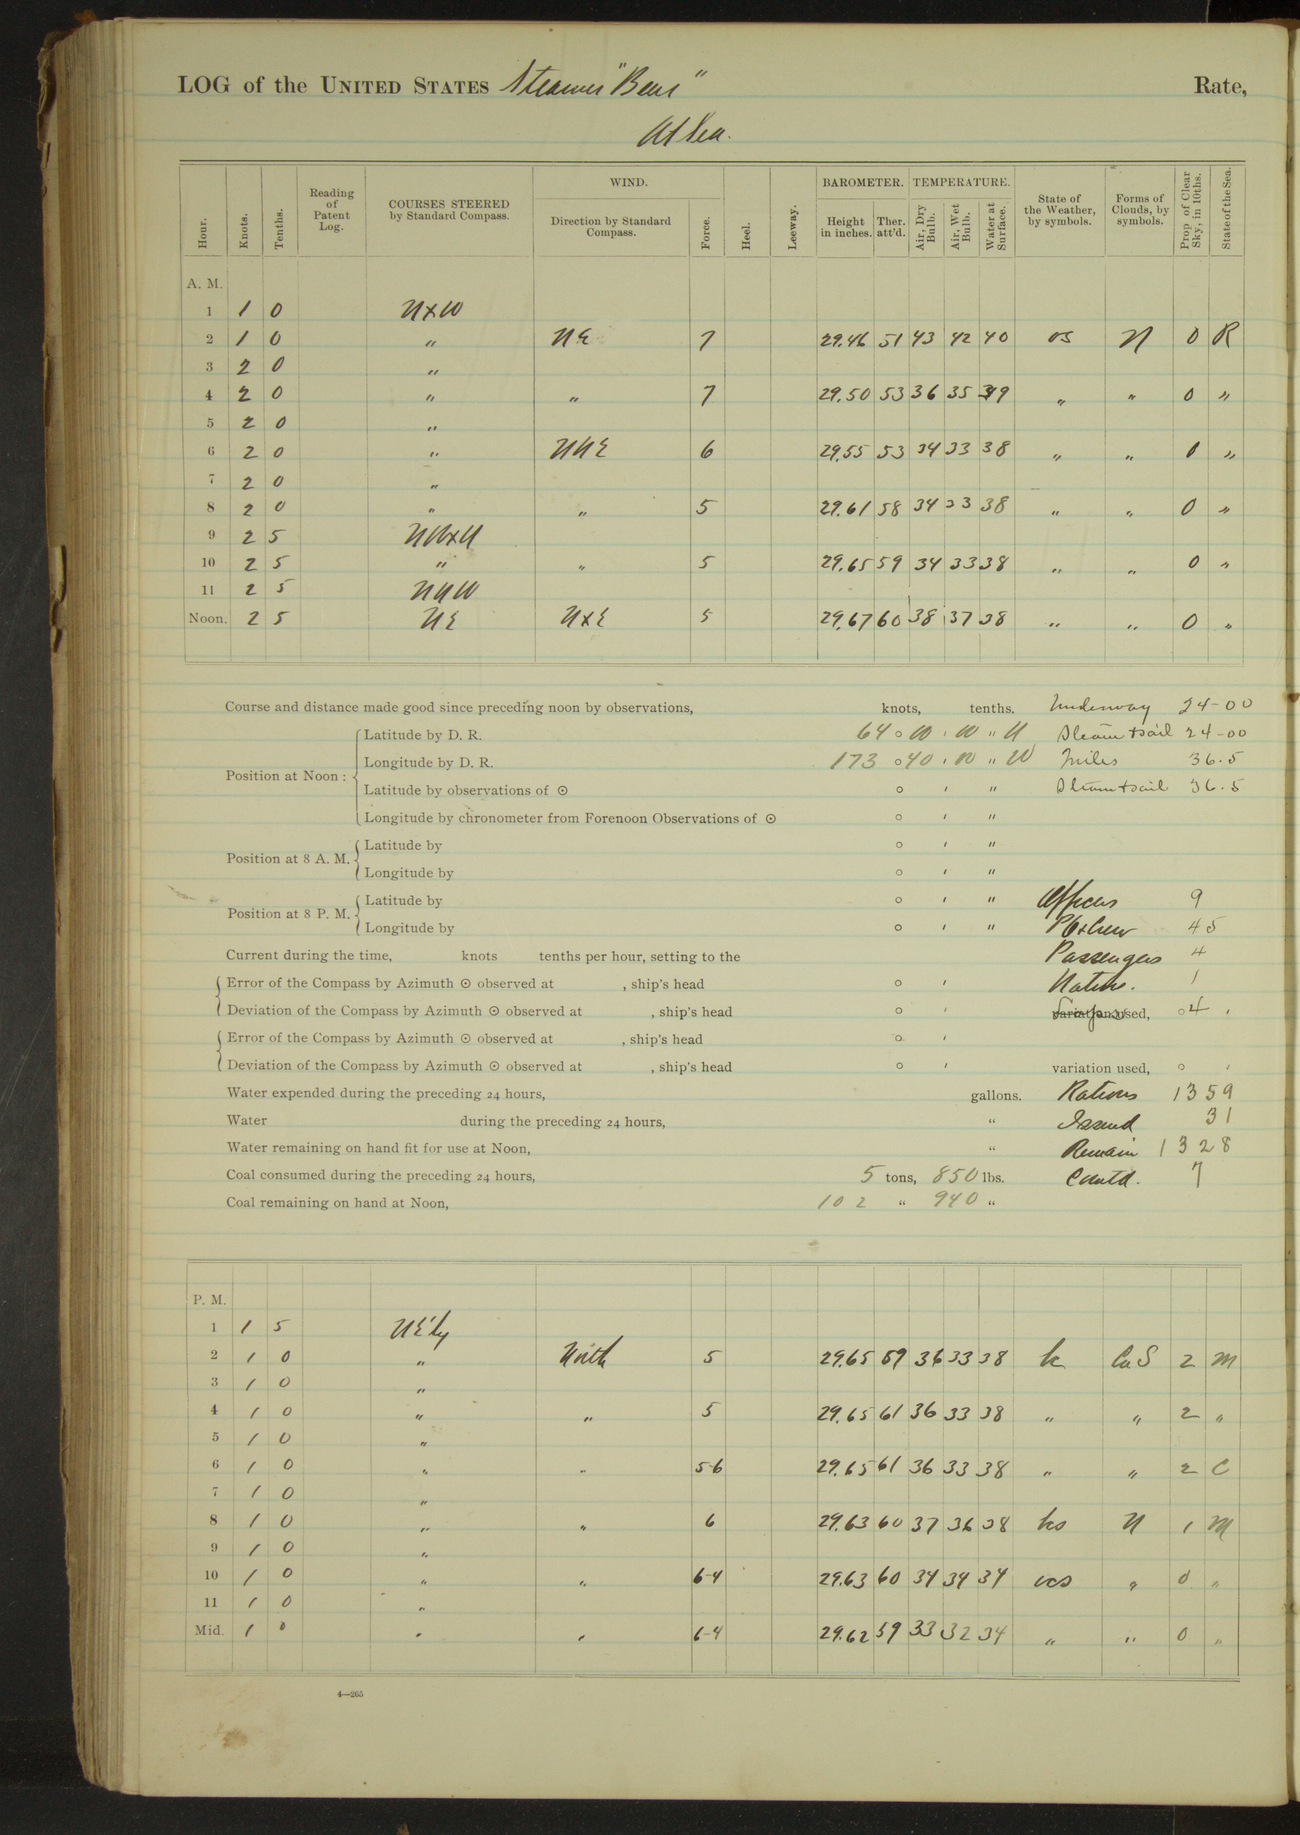 LOG of the UNITED STATES Steamer "Bear" Rate,
At Sea.
Hour. Knots. Tenths. Reading of Patent Log. COURSES STEERED by Standard Compass. WIND. Direction by Standard Compass. Force. Heel. Leeway. BAROMETER. Height in inches. Ther. att'd. TEMPERATURE. Air, Dry Bulb. Air, Wet Bulb. Water at Surface. State of the Weather, by symbols. Forms of Clouds, by symbols. Prop. of Clear Sky, in 10ths. State of the Sea.
A. M.
1 1 0 NxW
2 1 0 " NE 7 29.46 51 43 42 40 os N 0 R
3 2 0 "
4 2 0 " " 7 29.50 53 36 35 39 " " 0 "
5 2 0 "
6 2 0 " NNE 6 29.55 53 34 33 38 " " 0 "
7 2 0 "
8 2 0 " " 5 29.61 58 34 33 38 " " 0 "
9 2 5 NWxN
10 2 5 " " 5 29.65 59 34 33 38 " " 0 "
11 2 5 NNW
Noon. 2 5 NE NxE 5 29.67 60 38 37 38 " " 0 "
Course and distance made good since preceding noon by observations, knots, tenths. Underway 24-00
Latitude by D. R. 64 ° 00 ' 00 " N Steam & sail 24-00
Position at Noon: Longitude by D. R. 173 ° 40 ' 00 " W Miles 36.5
Latitude by observations of ☉ ° ' " Steam & sail 36.5
Longitude by chronometer from Forenoon Observations of ☉ ° ' "
Position at 8 A. M. Latitude by ° ' "
Longitude by ° ' "
Position at 8 P. M. Latitude by ° ' " Officers 9
Longitude by ° ' " 45
Current during the time, knots tenths per hour, setting to the Passengers 4
Error of the Compass by Azimuth ☉ observed at , ship's head ° ' Native. 1
Deviation of the Compass by Azimuth ☉ observed at , ship's head ° ' variation used, ° 4 '
Error of the Compass by Azimuth ☉ observed at , ship's head ° '
Deviation of the Compass by Azimuth ☉ observed at , ship's head ° ' variation used, ° '
Water expended during the preceding 24 hours, gallons. Rations 1359
Water during the preceding 24 hours, " Issued 31
Water remaining on hand fit for use at Noon, " Remain 1328
Coal consumed during the preceding 24 hours, 5 tons, 850 lbs. Comtd. 7
Coal remaining on hand at Noon, 102 " 940 "
P. M.
1 1 5 NE'ly
2 1 0 " North 5 29.65 59 36 33 38 bc CuS 2 M
3 1 0 "
4 1 0 " " 5 29.65 61 36 33 38 " " 2 "
5 1 0 "
6 1 0 " " 5-6 29.65 61 36 33 38 " " 2 C
7 1 0 "
8 1 0 " " 6 29.63 60 37 36 38 bs N 1 M
9 1 0 "
10 1 0 " " 6-4 29.63 60 34 34 34 ocs " 0 "
11 1 0 "
Mid. 1 0 " " 6-4 29.62 59 33 32 34 " " 0 "
4—265